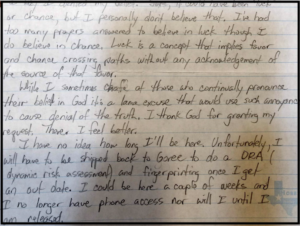 or chance, but I personally don't believe that. I've had
too many prayers answered to believe in luck though I
do believe in chance. Luck is a concept that implies favor
and chance crossing paths without any acknowledgement of
the source of that favor.
While I sometimes chafe at those who continually pronounce
their belief in God it's a lame excuse that would use such annoyance
to cause denial of the truth. I thank God for granting my
request. There. I feel better.
I have no idea how long I'll be here. Unfortunately, I
will have to be shipped back to Goree to do a DRA (
dynamic risk assessment) and fingerprinting once I get
an out date. I could be here a couple of weeks and
I no longer have phone access nor will I until I
am released.